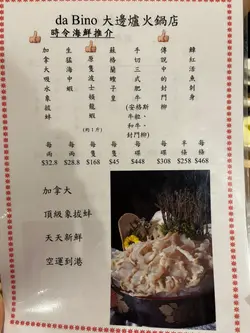 da Bino 大邊爐火鍋店
時令海鮮推介
加拿大吸水象拔蚌
每兩
$32.8
生猛海中蝦
每兩
$28.8
原隻波士頓龍蝦
(約1斤)
每隻
$168
蘇格蘭蟶子皇
每隻
$45
手切三式肥牛
(安格斯
和牛、
封門柳)
每碟
$448
傳說中的封門柳
每碟
$308
紅活魚刺身
半條
$258
每條
$468
加拿大
頂級象拔蚌
天天新鮮
空運到港